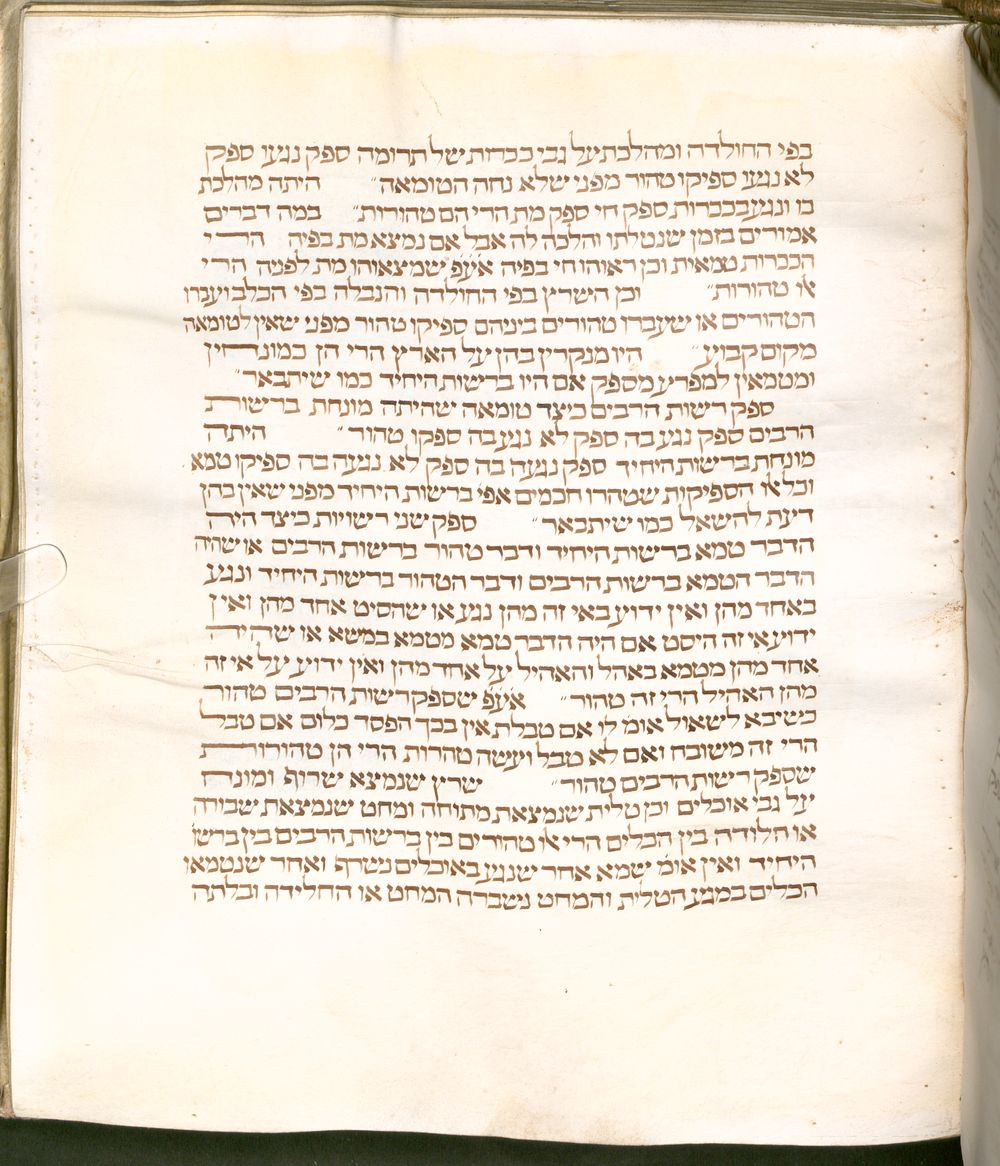 בפי החולדה ומהלכת על גבי ככרות של תרומה ספק נגעו ספק
לא נגעו ספיקו טהור מפני שלא נחה הטומאה״ היתה מהלכת
בו ונגע בככרות ספק חי ספק מת הרי הם טהורות״ במה דברים
אמורים בזמן שנטלתו והלכה לה אבל אם נמצא מת בפיה הרי
הככרות טמאות וכן ראוהו חי בפיה אע״פ שמצאוהו מת לפניה הרי
אלו טהורות״ וכן השרץ בפי החולדה והנבלה בפי הכלב ועברו
הטהורים או שעברו טהורים ביניהם ספיקו טהור מפני שאין לטומאה
מקום קבוע״ היו מנקרין בהן על הארץ הרי הן כמונחין
ומטמאין למפרע מספק אם היו ברשות היחיד כמו שיתבאר״
ספק רשות הרבים כיצד טומאה שהיתה מונחת ברשות
הרבים ספק נגע בה ספק לא נגע בה ספקו טהור״ היתה
מונחת ברשות היחיד ספק נגעה בה ספק לא נגעה בה ספיקו טמא
וכל אלו הספיקות שטהרו חכמים אפי׳ ברשות היחיד מפני שאין בהן
דעת להשאל כמו שיתבאר״ ספק שני רשויות כיצד היה
הדבר טמא ברשות היחיד ודבר טהור ברשות הרבים או שהיה
הדבר הטמא ברשות הרבים ודבר הטהור ברשות היחיד ונגע
באחד מהן ואין ידוע באי זה מהן נגע או שהסיט אחד מהן ואין
ידוע אי זה היסט אם היה הדבר טמא מטמא במשא או שהיה
אחד מהן מטמא באהל והאהיל על אחד מהן ואין ידוע על אי זה
מהן האהיל הרי זה טהור״ אע״פ שספק רשות הרבים טהור
כשיבא לשאול אומ׳ לו אם טבלת אין בכך הפסד כלום אם טבל
הרי זה משובח ואם לא טבל ועשה טהרות הרי הן טהורות
שספק רשות הרבים טהור״ שרץ שנמצא שרוף ומונח
על גבי אוכלים וכן טלית שנמצאת מתוחה ומחט שנמצאת שבורה
או חלודה בין הכלים הרי אלו טהורים בין ברשות הרבים בין ברשו׳
היחיד ואין אומ׳ שמא אחר שנגע באוכלים נשרף ואחר שנטמאו
הכלים במגע הטלית והמחט נשברה המחט או החלידה ובלתה